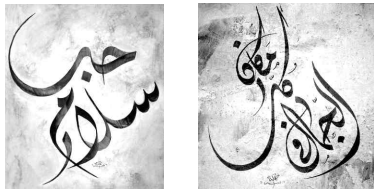 حب
سلام
الجمال في كل مكان